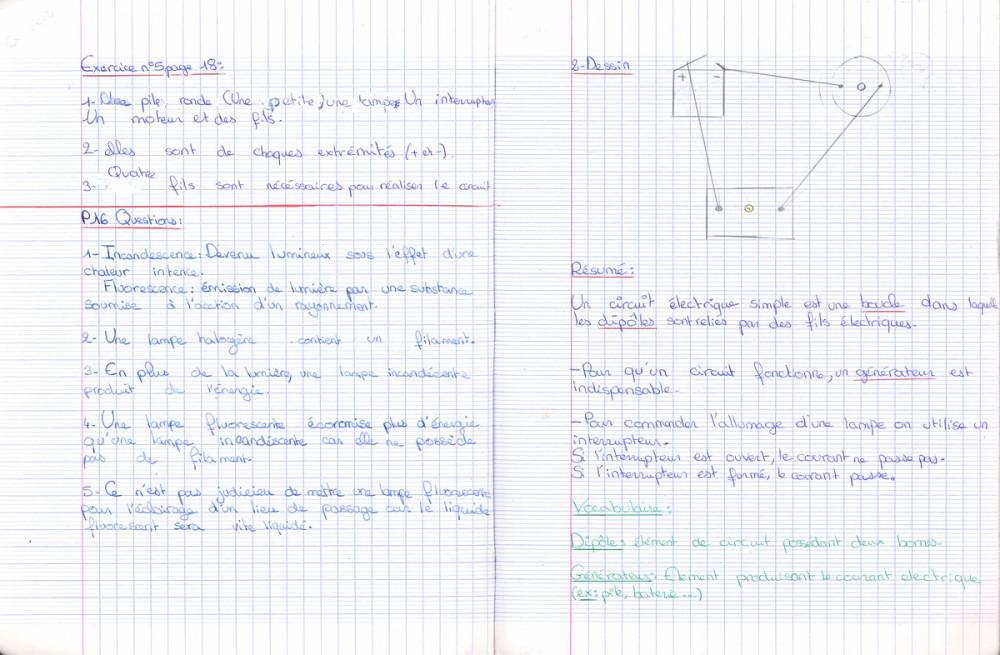 Exercice n°5 page 18:
1- pile ronde (Une petite) une lampe Un interrupteur
Un moteur et des fils.
2- Elles sont de chaques extrémités (+ et -).
Quatre
3- fils sont nécéssaires pour réaliser le circuit
P.16 Questions:
1- Incandescence: Devenu lumineux sous l'effet d'une
chaleur intence.
Fluorescence: émission de lumière par une substance
soumise à l'acction d'un rayonnement.
2- Une lampe halogène contient un filament.
3- En plus de la lumière, une lampe incandécente
produit de l'énergie.
4- Une lampe fluorescente économise plus d'énergie
qu'une lampe incandéscente car elle ne possède
pas de filament.
5- Ce n'est pas judicieu de mettre une lampe fluorescente
pour l'éclairage d'un lieu de passage car le liquide
fluorescent sera vite liquidé.
2- Dessin
+ -
Résumé:
Un circuit électrique simple est une boucle dans laquelle
les dipôles sont reliés par des fils électriques.
- Pour qu'un circuit fonctionne, un générateur est
indispensable.
- Pour commander l'allumage d'une lampe on utilise un
interrupteur.
Si l'interrupteur est ouvert, le courant ne passe pas.
Si l'interrupteur est formé, le courant passe.
Vocabulaire:
Dipôle: élément de circuit possédant deux bornes
Générateur: Element produisant le courant electrique
(ex: pile, baterie...)